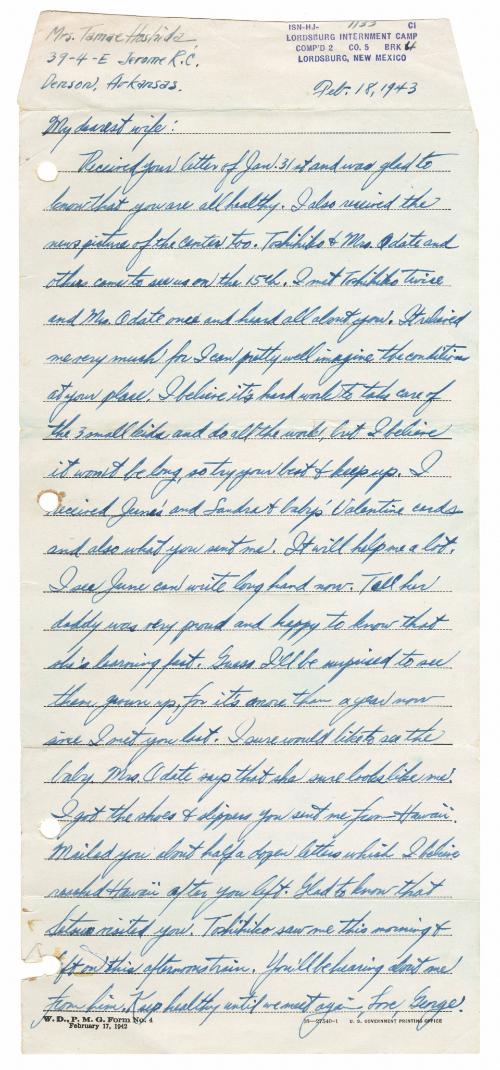 Mrs. Tamae Hoshida
39-4-E Jerome R.C.
Denson, Arkansas.
ISN-HJ- 1133 CI
LORDSBURG INTERNMENT CAMP
COMP'D 2 CO. 5 BRK 4
LORDSBURG, NEW MEXICO
Feb. 18, 1943
My dearest wife:
Received your letter of Jan. 31st and was glad to
know that you are all healthy. I also received the
news picture of the center too. Toshihiko & Mrs. Odate and
others came to see us on the 15th. I met Toshihiko twice
and Mrs. Odate once and heard all about you. It relieved
me very much for I can pretty well imagine the conditions
at your place. I believe it's hard work to take care of
the 3 small kids and do all the work, but I believe
it won't be long, so try your best & keep up. I
received June's and Sandra & baby's Valentine cards
and also what you sent me. It will help me a lot.
I see June can write long hand now. Tell her
daddy was very proud and happy to know that
she's learning fast. Guess I'll be surprised to see
them grown up, for it's more than a year now
since I met you last. I sure would like to see the
baby. Mrs. Odate says that she sure looks like me.
I got the shoes & slippers you sent me from Hawaii.
Mailed you about half a dozen letters which I believe
reached Hawaii after you left. Glad to know that
visited you. Toshihiko saw me this morning &
left on this afternoon's train. You'll be hearing about me
from him. Keep healthy until we meet again, Love, George.
W. D., P. M. G. Form No. 4
February 17, 1942
16—27340-1 U. S. GOVERNMENT PRINTING OFFICE